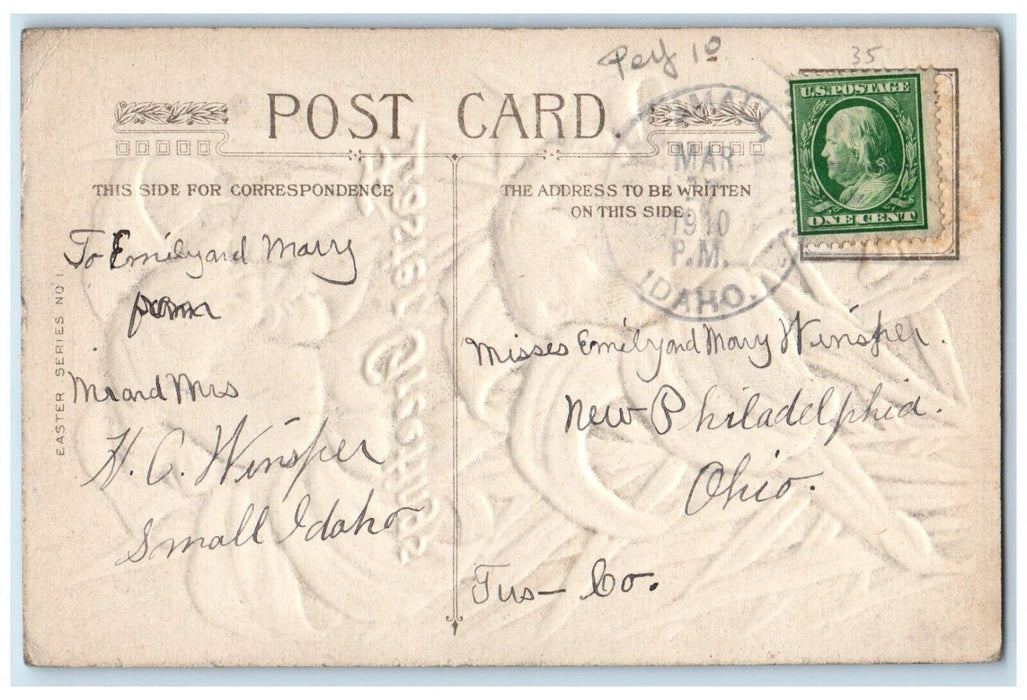 Pey 10
35
POST CARD.
U.S. POSTAGE
ONE CENT
MAR
1910
P.M.
IDAHO.
THIS SIDE FOR CORRESPONDENCE
THE ADDRESS TO BE WRITTEN
ON THIS SIDE.
EASTER SERIES NO 1.
Easter Greetings
To Emily and Mary
from
Mr and Mrs
H. C. Winsper
Small Idaho
Misses Emily and Mary Winsper.
New Philadelphia.
Ohio.
Tus- Co.